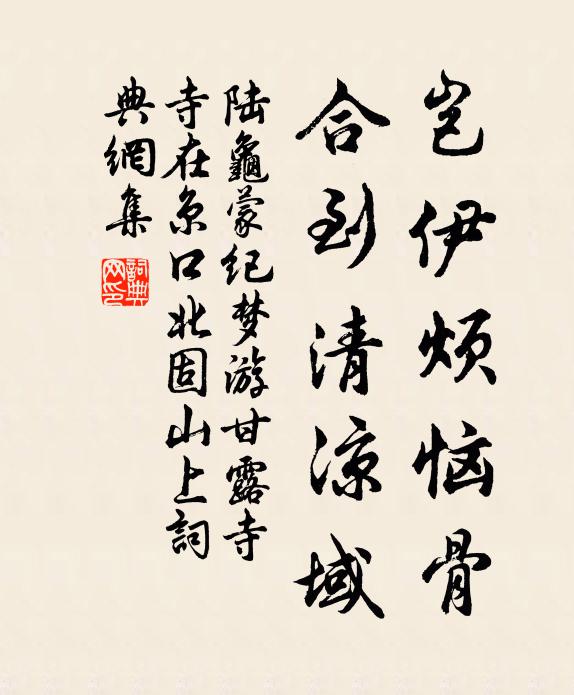 岂伊烦恼骨
合到清凉域
陆龜蒙纪梦游甘露寺
寺在京口北固山上詞
典網集
詞典
网印